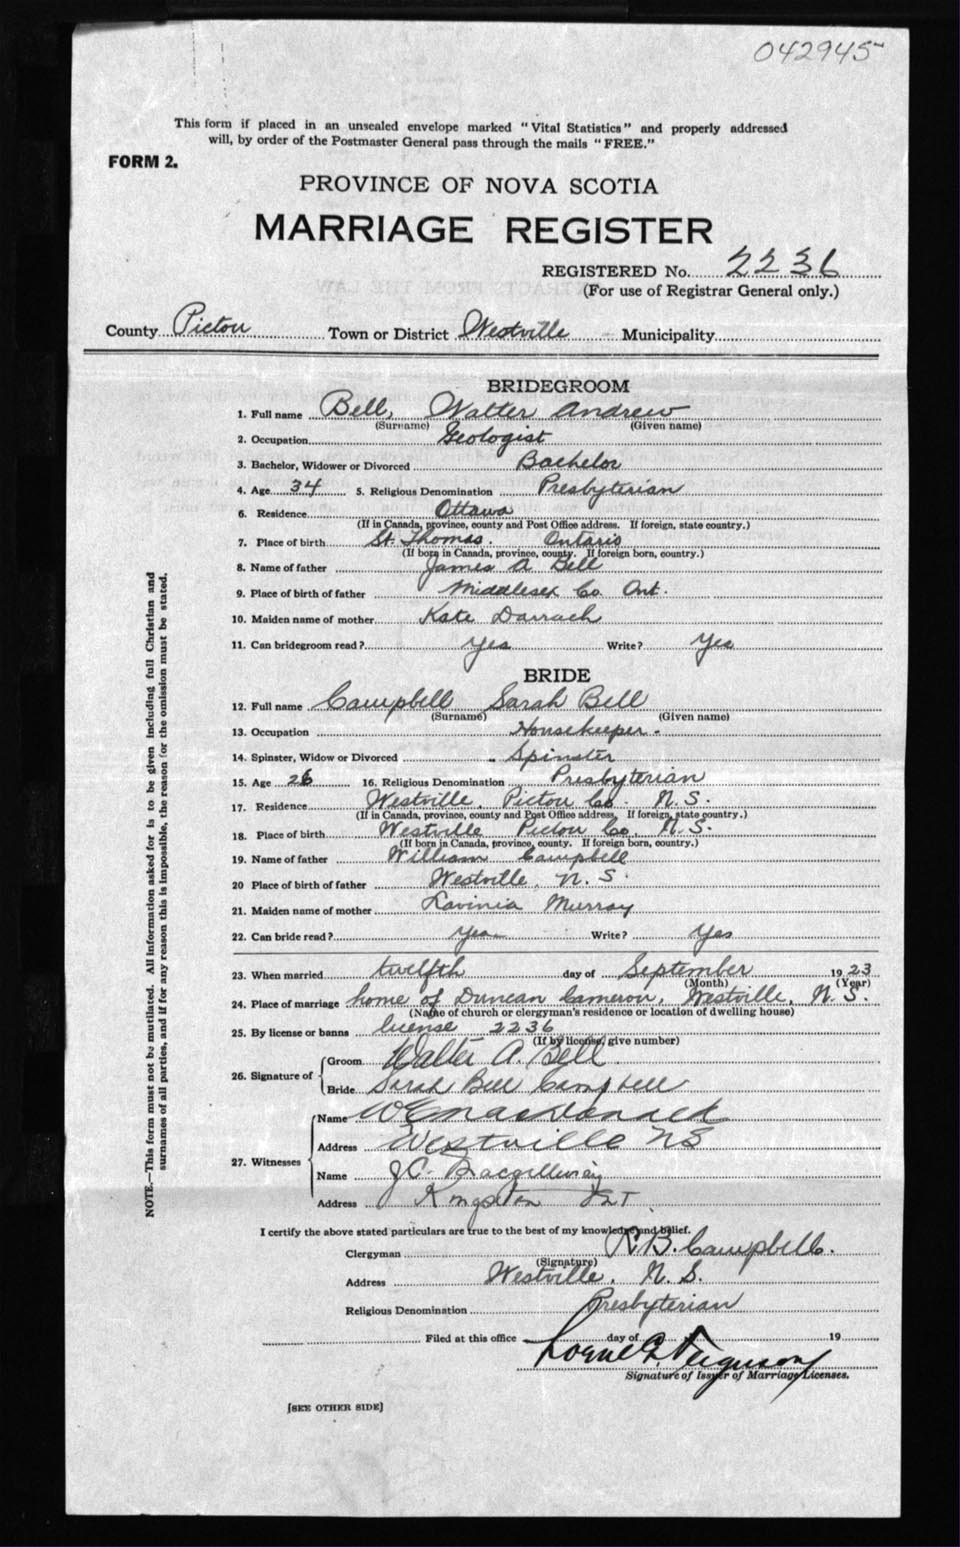 042945
This form if placed in an unsealed envelope marked "Vital Statistics" and properly addressed
will, by order of the Postmaster General pass through the mails "FREE."
FORM 2.
PROVINCE OF NOVA SCOTIA
MARRIAGE REGISTER
REGISTERED No. 2236
(For use of Registrar General only.)
County Pictou Town or District Westville Municipality
BRIDEGROOM
1. Full name Bell, Walter Andrew
(Surname) (Given name)
2. Occupation Geologist
3. Bachelor, Widower or Divorced Bachelor
4. Age 34 5. Religious Denomination Presbyterian
6. Residence Ottawa
(If in Canada, province, county and Post Office address. If foreign, state country.)
7. Place of birth St. Thomas. Ontario
(If born in Canada, province, county. If foreign born, country.)
8. Name of father James A Bell
9. Place of birth of father Middlesex Co. Ont.
10. Maiden name of mother Kate Darrach
11. Can bridegroom read? Yes Write? Yes
BRIDE
12. Full name Campbell Sarah Bell
(Surname) (Given name)
13. Occupation Housekeeper.
14. Spinster, Widow or Divorced Spinster
15. Age 26 16. Religious Denomination Presbyterian
17. Residence Westville, Pictou Co. N.S.
(If in Canada, province, county and Post Office address, If foreign, state country.)
18. Place of birth Westville Pictou Co, N.S.
(If born in Canada, province, county. If foreign born, country.)
19. Name of father William Campbell
20 Place of birth of father Westville, N.S.
21. Maiden name of mother Lavinia Murray
22. Can bride read? Yes Write? Yes
23. When married twelfth day of September 1923
(Month) (Year)
24. Place of marriage home of Duncan Cameron, Westville, N.S.
(Name of church or clergyman's residence or location of dwelling house)
25. By license or banns license 2236
(If by license, give number)
26. Signature of
Groom Walter A. Bell
Bride Sarah Bell Campbell
27. Witnesses
Name
Address Westville NS
Name J.C.
Address Kingston Ont.
I certify the above stated particulars are true to the best of my knowledge and belief.
Clergyman R.B. Campbell.
(Signature)
Address Westville, N.S.
Religious Denomination Presbyterian
Filed at this office day of 19
Lorne G. Ferguson
Signature of Issuer of Marriage Licenses.
[SEE OTHER SIDE]
NOTE.—This form must not be mutilated. All information asked for is to be given including full Christian and
surnames of all parties, and if for any reason this is impossible, the reason for the omission must be stated.